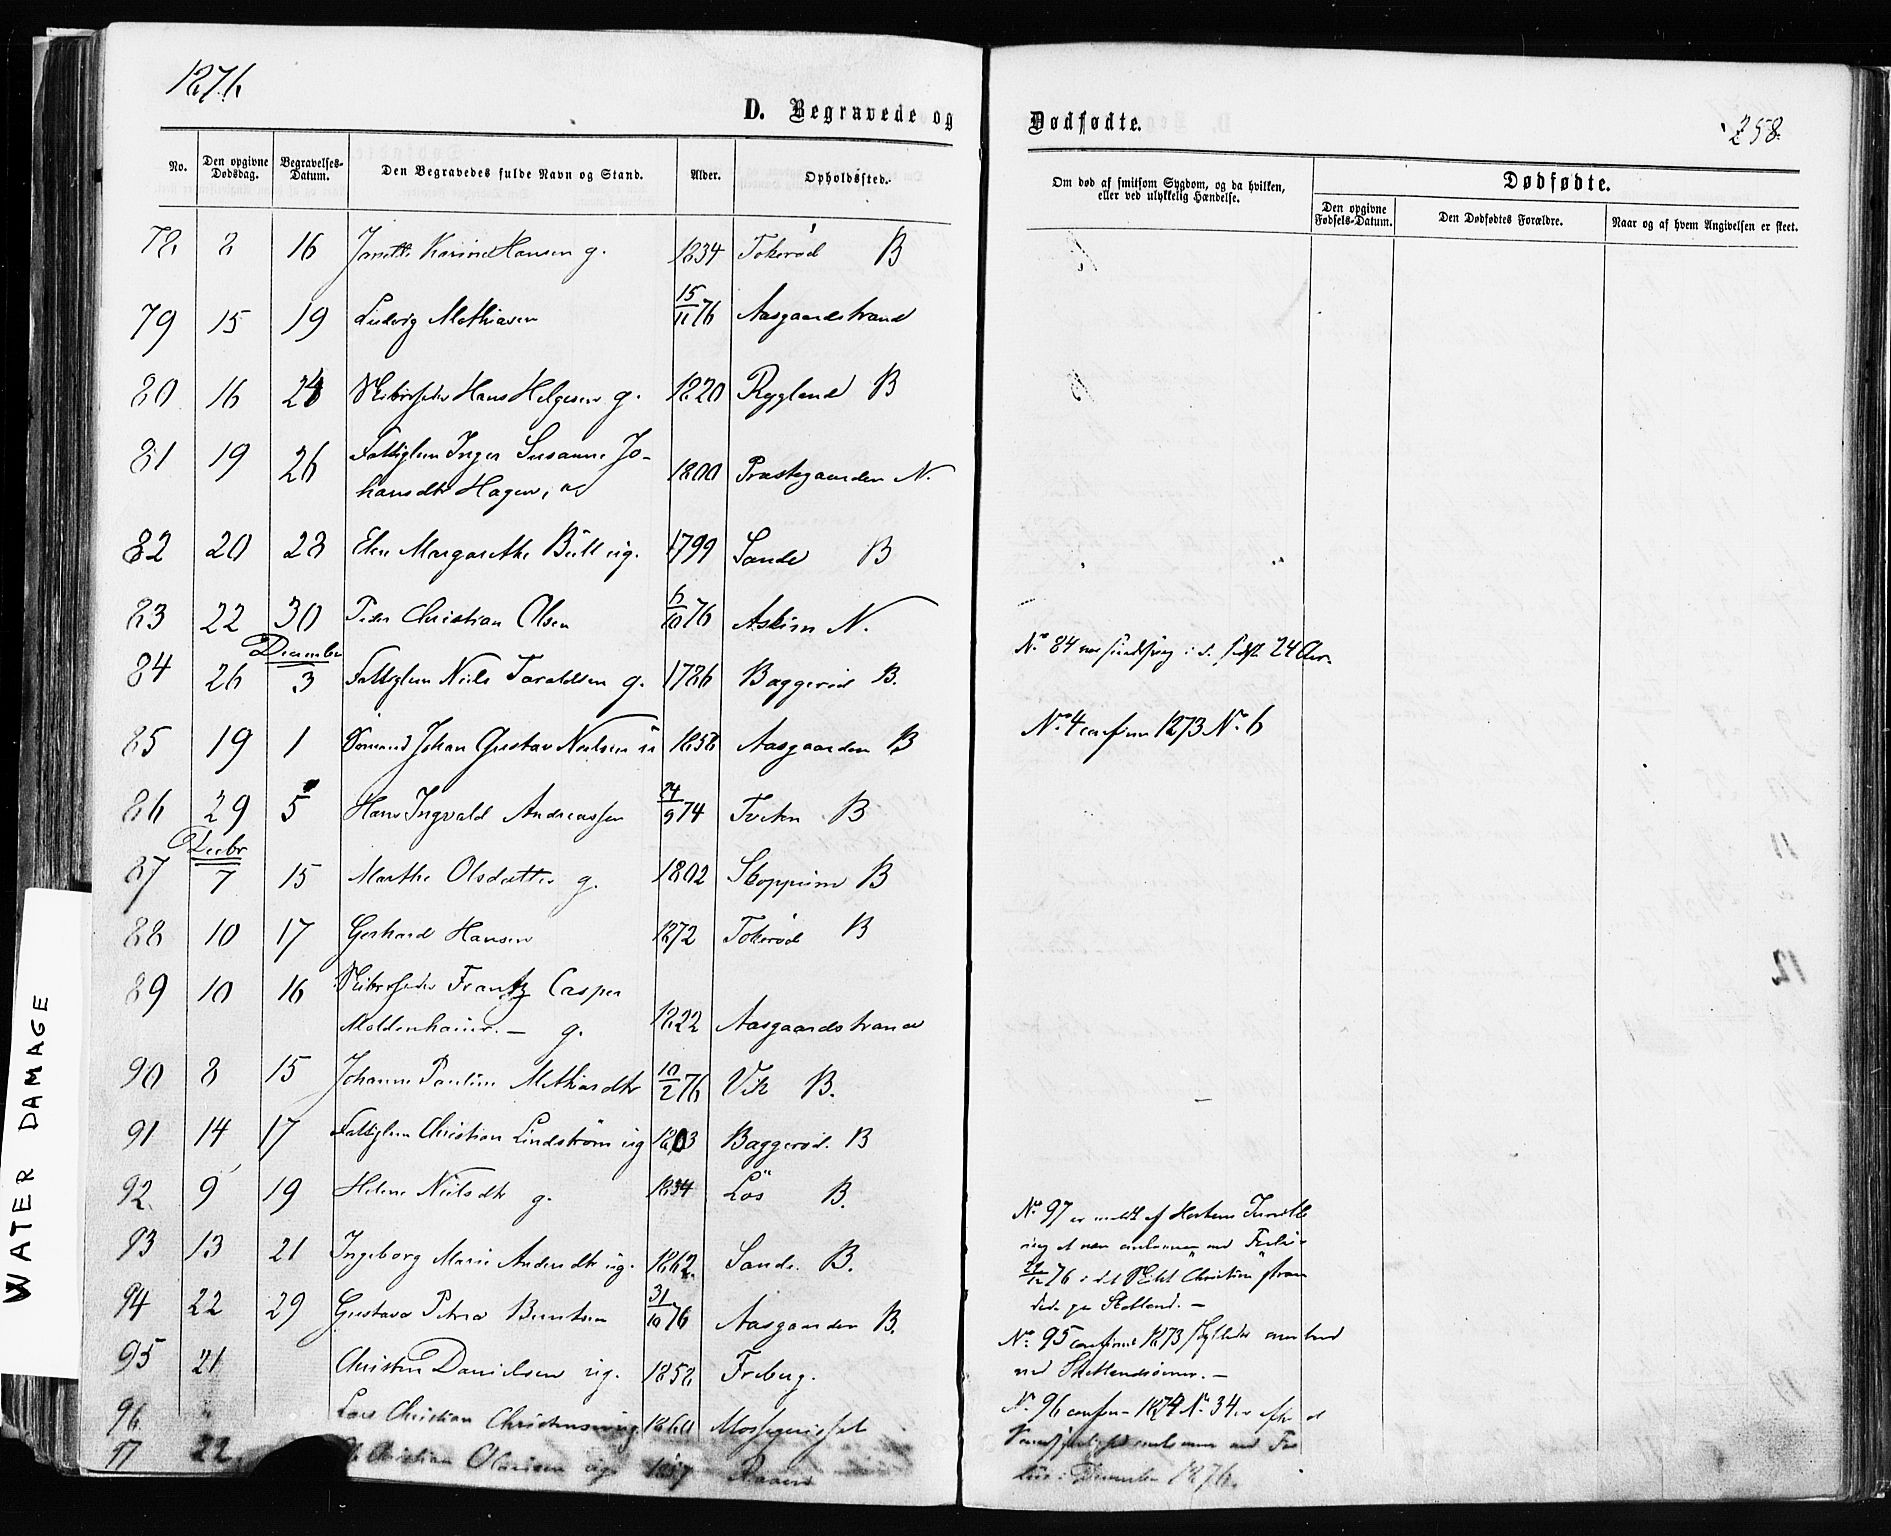 1876.
D. Begravede og
No. Den opgivne Dødsdag. Begravelses-Datum. Den Begravedes fulde Navn og Stand. Alder. Opholdssted.
78. 8 16 Janette Karine Hansen g. 1834 Tokerød B
79 15 19 Ludvig Mathiasen 15/11 76 Aasgaardstrand
80 16 24 Hans Helgesen g. 1820 Rygland B
81 19 26 Fattiglem Inger Susanne Jo-
hansdtr Hagen, 1800 Præstegaarden N.
82 20 28 Elen Margarethe Bull ug. 1799 Sande B
83 22 30 Peder Christian Olsen 6/10 76 Askim N.
December
84 26 3 Fattiglem Niels Taraldsen g. 1786 Baggerød B.
85 19 1 Sømand Johan Gustav Nielsen 1858 Aasgaarden B
86 29 5 Hans Ingvald Andreassen 24/9 74 Tveten B
Decbr
87 7 15 Marthe Olsdatter g. 1802 Skoppum B
88 10 17 Gerhard Hansen 1872 Tokerød B
89 10 16 Frantz Casper
Moldenhauer. – g. 1822 Aasgaardstrand
90 8 15 Johanne Pauline Mathiasdtr 10/2 76 Vik B.
91 14 17 Fattiglem Christian Lindstrøm ug 1803 Baggerød. B
92. 9 19 Helene Nielsdtr g. 1834 Løs B.
93 13 21 Ingeborg Marie Andersdtr ug. 1862. Sande. B.
94 22 29 Gustava Petra Berntsen 31/10 76 Aasgaarden B.
95 21 Christen Danielsen ug. 1858 Freberg.
96 " Lars Christian Christensen ug 1860
97 22 Christian Olausen ug.
Dødfødte.
258.
Om død af smitsom Sygdom, og da hvilken, eller ved ulykkelig Hændelse.
Dødfødte.
Den opgivne Fødsels-Datum. Den Dødfødtes Forældre. Naar og af hvem Angivelsen er skeet.
No 84 var sindssvag i de sidste 24 Aar
No 4 confirm 1873 No 6
No 97 er meldt af
at være omkommen ved Forlis
12 76 i det Christian stran
dede paa Shetland. –
No 95 confirm 1873 omkom
ved Shetlandsøerne. –
No 96 confirm 1874 No 34 er efter
omkommen ved For
lis i December 1876.
WATER DAMAGE